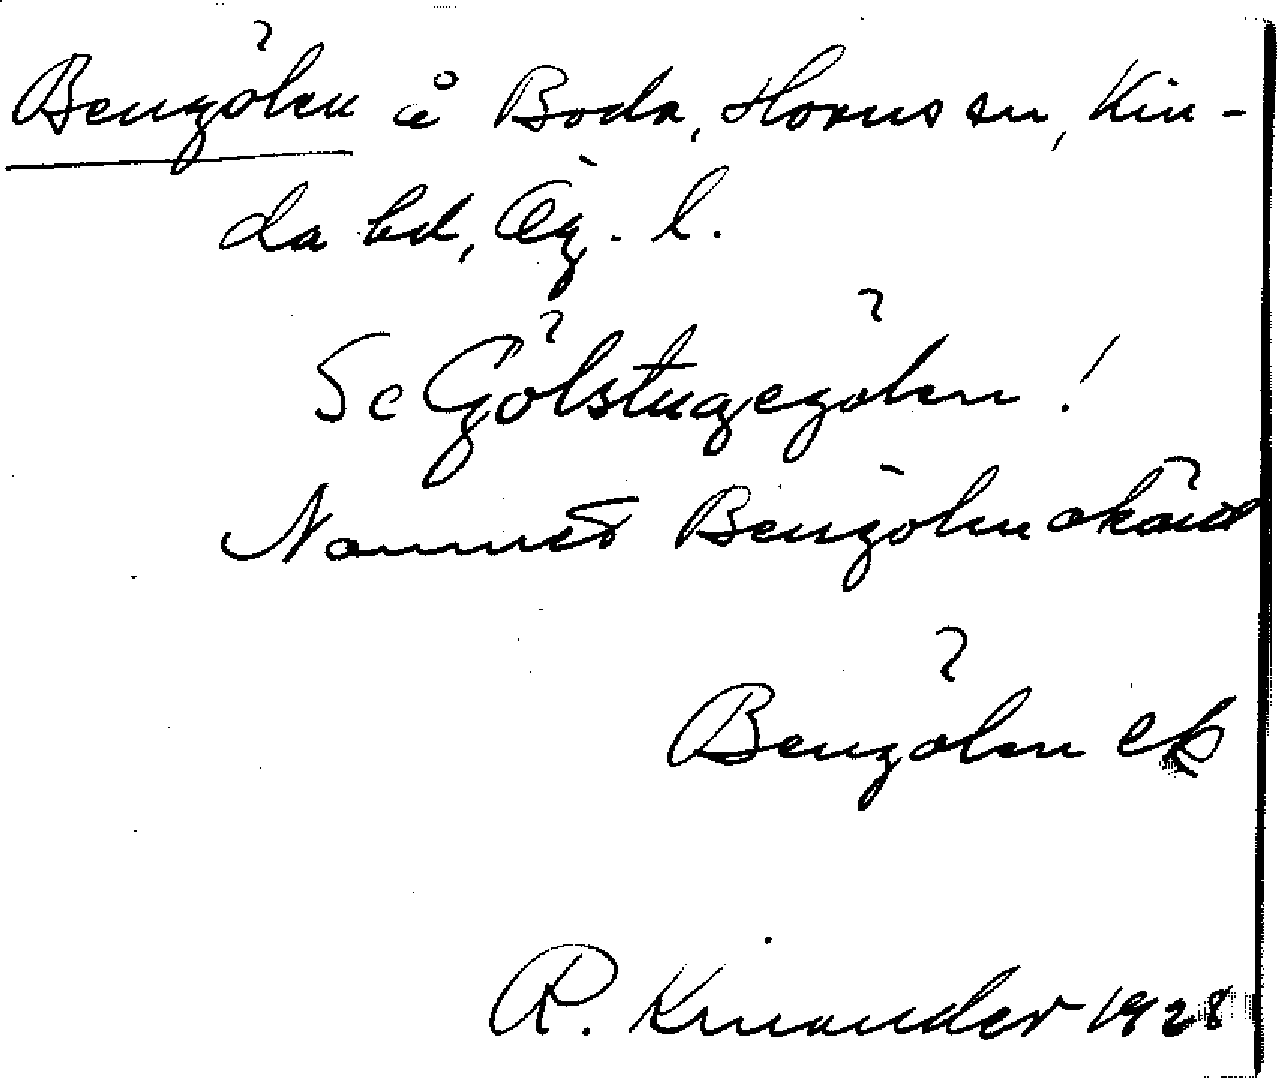 Bengölen å Boda, Horns sn, Kin-
da hd, Ög. l.
Se Gölstugegölen!
Namnet Bengölen okänt
Bengölen ek
R. Kinander 1928